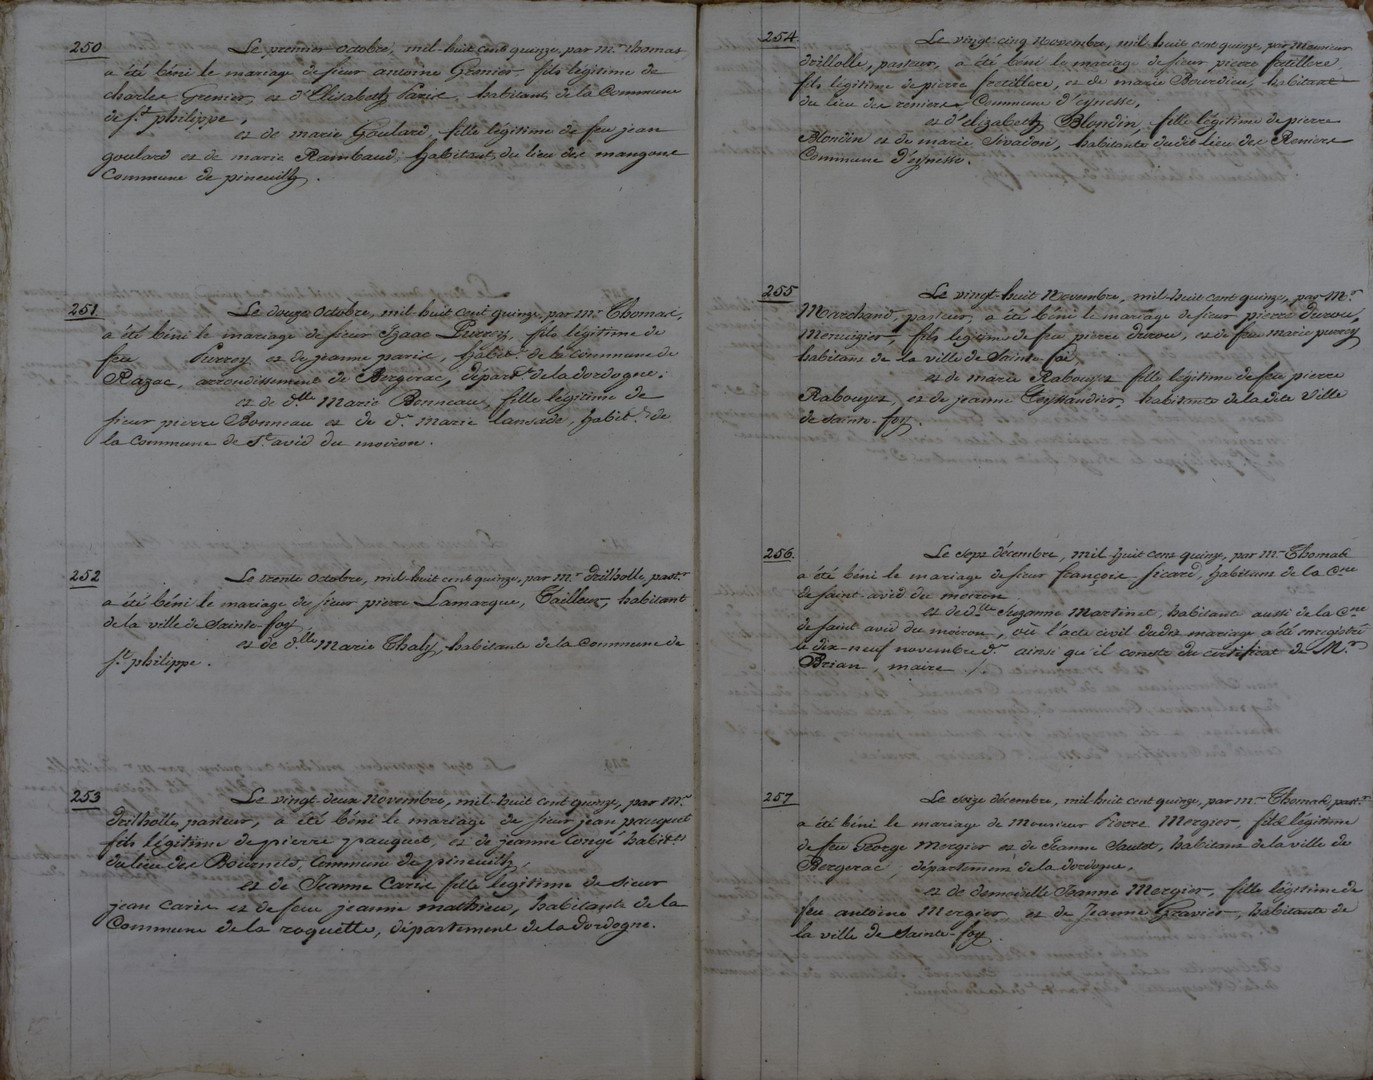 250
Le premier octobre, mil-huit cent quinze, par mr. thomas
a été béni le mariage de sieur antoine Grenier fils légitime de
charles Grenier, et d'Elisabeth Paris, habitant de la Commune
de St. philippe,
et de marie Goulard, fille légitime de feu jean
goulard et de marie Rambaud, habitant du lieu des mangons
Commune de pineuilh.
251
Le douze octobre, mil-huit cent quinze, par mr. Thomas,
a été béni le mariage de sieur Isaac Perroy, fils légitime de
feu Perroy et de jeanne paris, habit. de la Commune de
Razac, arrondissement de Bergerac, départt. de la dordogne,
et de dlle Marie Bonneau, fille légitime de
sieur pierre Bonneau et de de. marie lansade, habit. de
la Commune de St. avid du moiron.
252
Le trente octobre, mil-huit cent quinze, par mr Drilholle, pastr
a été béni le mariage de sieur pierre Lamargue, Tailleur, habitant
de la ville de Sainte-foy
et de dlle Marie Thaly, habitante de la Commune de
St. philippe.
253
Le vingt-deux Novembre, mil-huit cent quinze, par Mr
Drilholle pasteur, a été béni le mariage de sieur jean pauquet
fils légitime de pierre pauquet, et de jeanne Congé habit
du lieu des Bournets, Commune de pineuilh,
et de Jeanne Caris fille légitime de Sieur
jean Caris et de feu jeanne mathieu, habitante de la
Commune de la roquette, département de la dordogne.
254
Le vingt-cinq Novembre, mil huit cent quinze, par Monsieur
Drilholle, pasteur, a été béni le mariage de sieur pierre fretillere,
fils légitime de pierre fretillere, et de marie Bourdieu, habitant
du lieu des reniers, Commune d'eynesse,
et d'elizabeth Blondin, fille légitime de pierre
Blondin et de marie Sivadon, habitante dudit lieu des Reniers
Commune d'eynesse.
255
Le vingt-huit Novembre, mil-huit cent quinze, par Mr
Marchand, pasteur, a été béni le mariage de sieur pierre Durou,
Menuisier, fils légitime de feu pierre durou, et de feu marie perroy
habitans de la ville de Sainte foi
et de marie Rabouyes fille légitime de feu pierre
Rabouyes, et de jeanne Teyssandier, habitante de la dite Ville
de Sainte-foy.
256
Le sept décembre, mil-huit cent quinze, par mr Thomas
a été béni le mariage de sieur françois Sicard, habitant de la Cne
de saint avid du moiron
et de dlle Suzanne Martinet, habitante aussi de la Cne
de saint avid du moiron, où l'acte civil dudit mariage a été enregistré
le dix-neuf novembre dr. ainsi qu'il conste du certificat de Mr
Brian, maire.
257
Le Seize décembre, mil-huit cent quinze, par mr Thomas, pastr
a été béni le mariage de Monsieur Pierre Mergier, fils légitime
de feu George Mergier et de Jeanne Sautet, habitant de la ville de
Bergerac, département de la dordogne,
et de demoiselle Jeanne Mergier, fille légitime de
feu antoine Mergier et de Jeanne Gravier, habitante de
la ville de Sainte-foy.